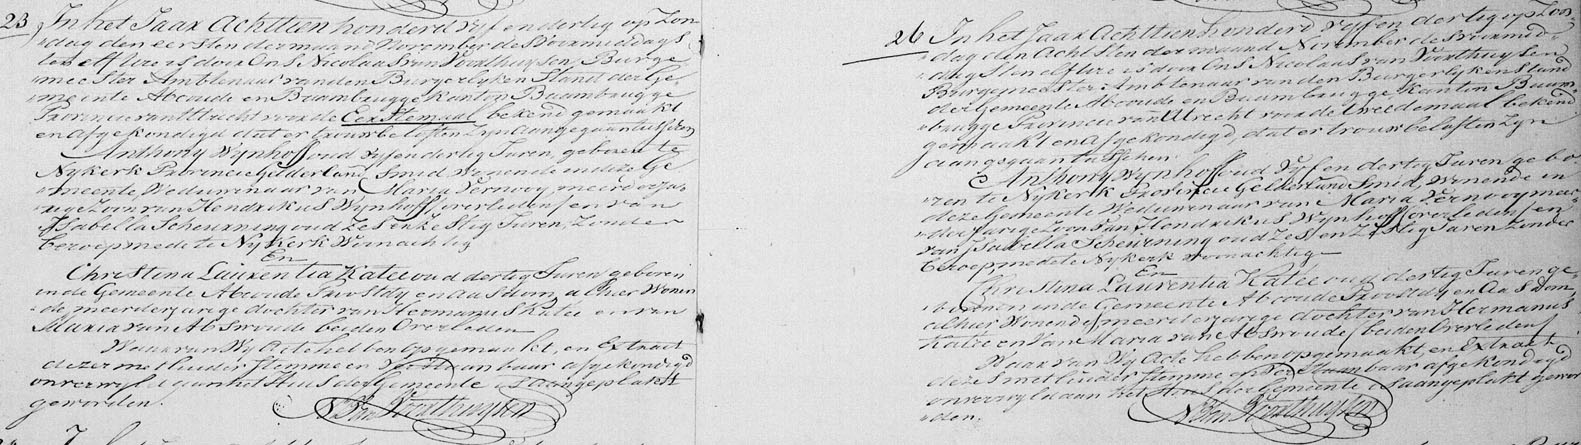 23 In het Jaar Achttien honderd vyf en dertig op Zon-
dag den eersten der maand November des Voormiddags
ten elf ure is door Ons Nicolaas van Voorthuysen, Burge-
meester Ambtenaar van den Burgerlyken Stand der Ge-
meente Abcoude en Baambrugge Kanton Baambrugge
Provincie van Utrecht voor de Eerstemaal bekend gemaakt
en afgekondigd dat er trouwbeloften zyn aangegaan tusschen
Anthony Wynhoff oud vyf en dertig Jaren, geboren te
Nykerk Provincie Gelderland Smid Wonende in deze Ge
meente, Weduwenaar van Maria Vernooy meerderja-
rige Zoon van Hendrikus Wynhoff, overleden / en van
Isabella Scheurning oud Zes en Zestig Jaren, Zonder
beroep mede te Nykerk Woonachtig
En
Christina Laurentia Katee oud dertig Jaren geboren
in de Gemeente Abcoude Proostdy en Aasdom, alhier Wonen
de meerderjarige dochter van Hermanus Katee en van
Maria van Abswoude beiden Overleden
Waar van Wy Acte hebben opgemaakt, en Extract
dezer met luider Stemme en afgekondigd
onverwyld aan het Huis der Gemeente is aangeplakt
geworden.
N van Voorthuysen
26 In het Jaar Achttien honderd vyf en dertig op Zon-
dag den Achtsten der maand November des Voormid-
dags ten elf ure is door Ons Nicolaas van Voorthuysen
Burgemeester Ambtenaar van den Burgerlyken Stand
der Gemeente Abcoude en Baambrugge Kanton Baam-
brugge Provincie van Utrecht voor de tweedemaal bekend
gemaakt en afgekondigd, dat er trouwbeloften zyn
aangegaan tusschen
Anthony Wynhoff oud Vyf en dertig Jaren gebo-
ren te Nykerk Provincie Gelderland Smid, Wonende in
deze Gemeente Weduwenaar van Maria Vernooy meer-
derjarige Zoon van Hendrikus Wynhoff overleden / en
van Isabella Scheurning oud Zes en Zestig Jaren Zonder
beroep mede te Nykerk woonachtig
En
Christina Laurentia Katee oud dertig Jaren ge-
boren in de Gemeente Abcoude Proostdy en Aasdom,
alhier Wonende / meerderjarige dochter van Hermanus
Katee en van Maria van Abswoude / beiden Overleden
Waar van Wy Acte hebben opgemaakt, en Extract
dezes met luider Stemme afgekondigd
onverwyld aan het Huis der Gemeente is aangeplakt gewor
den.
N van Voorthuysen